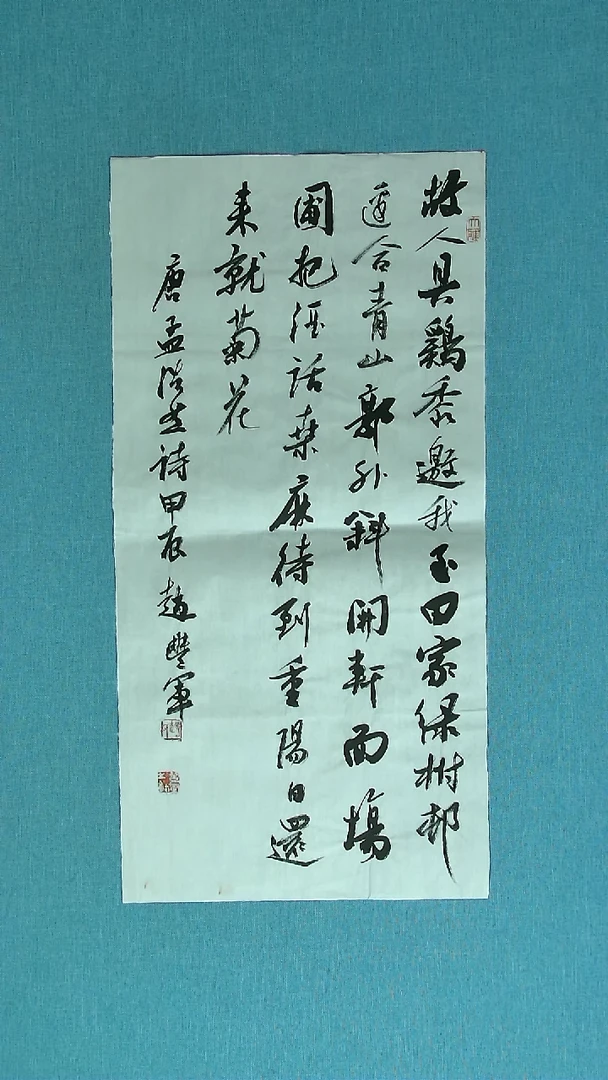 故人具鷄黍邀我至田家绿树邨
邊合青山郭外斜開軒面場
圃把酒話桑麻待到重陽日還
来就菊花
唐孟浩然詩甲辰趙豐軍